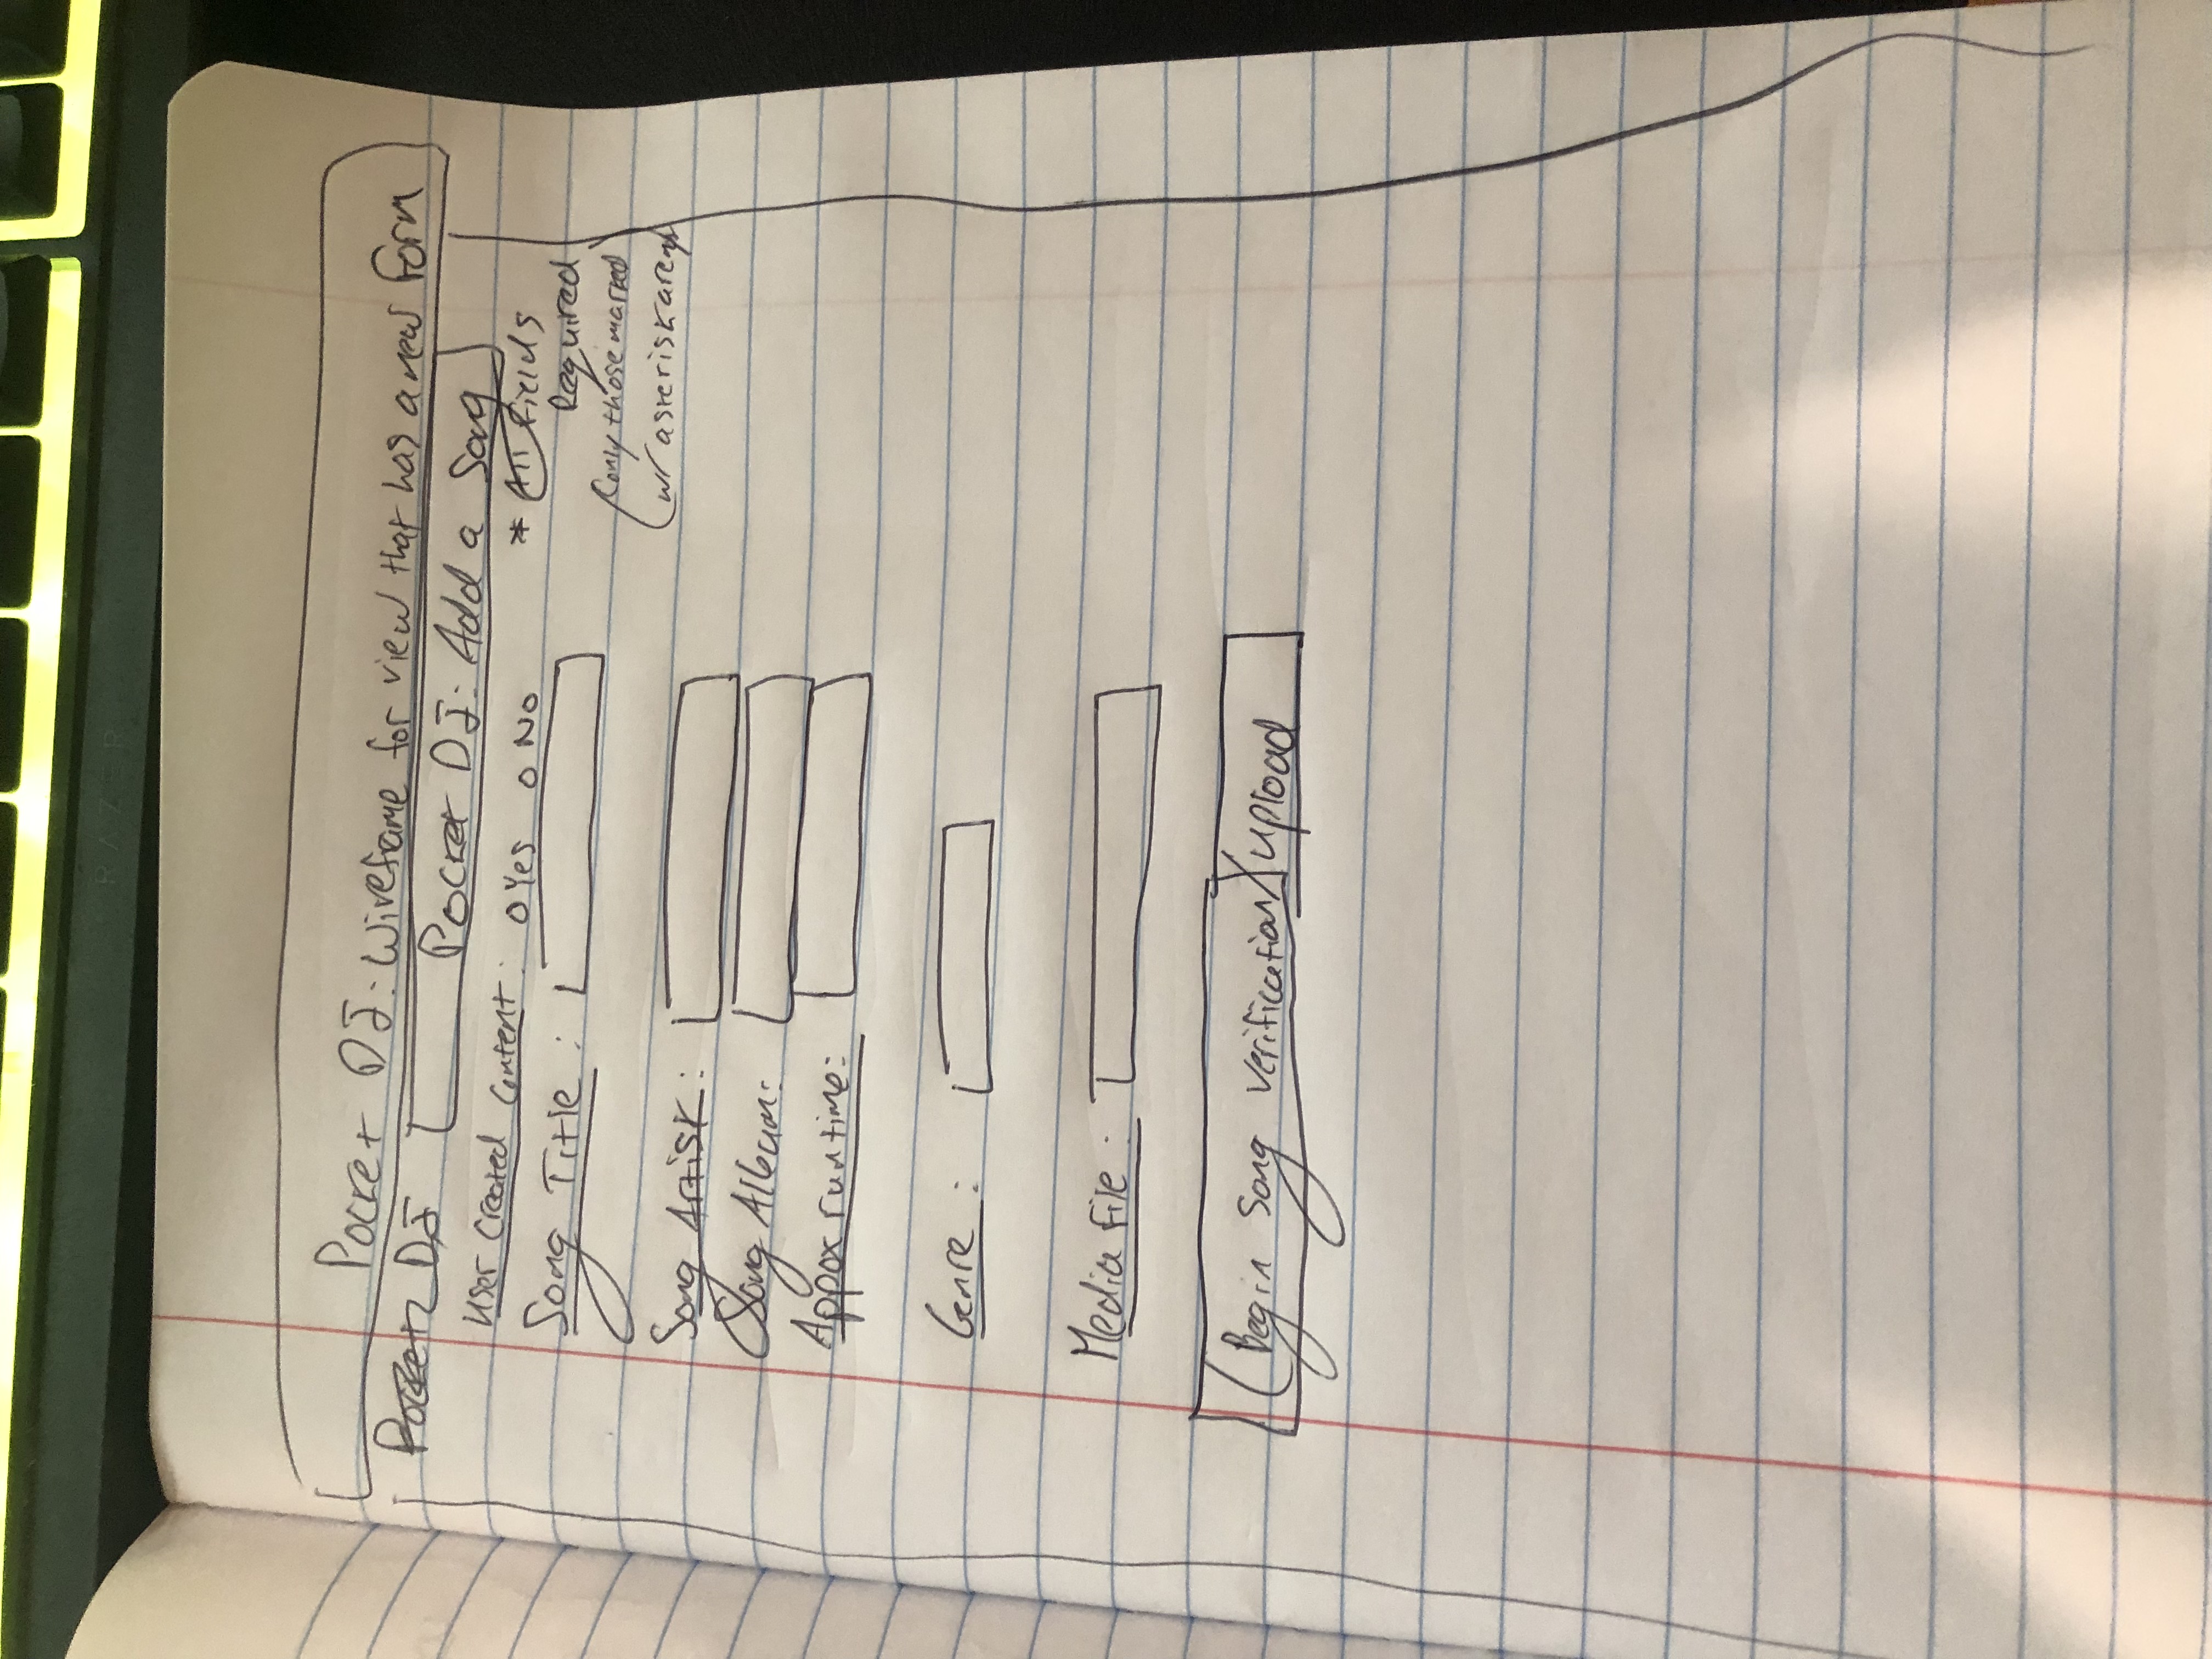 RAZER
Pocket DJ: Wireframe for view that has a new Form
Pocket DJ
Pocket DJ: Add a Song
User Created Content: O Yes O No
* All Fields
Required
Song Title:
(only those marked
w/ asterisk are
Song Artist:
Song Album:
Appox runtime:
Genre:
Media File:
(Begin Song Verification)/upload